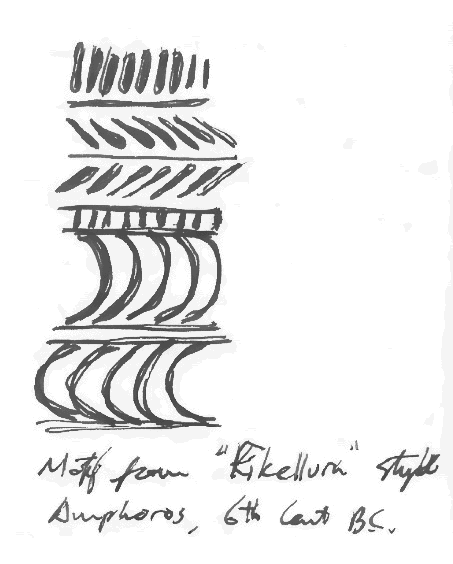 Motif from "Fikellura" style
Amphoros, 6th Cent B.C.